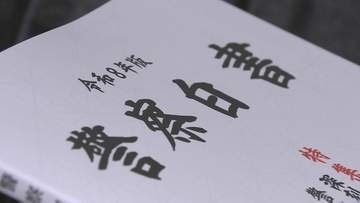 令和8年版
警察白書
特集
深刻
警
警察